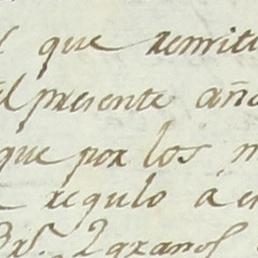 que remiti
el presente año
que por los m
regulo á e
granos